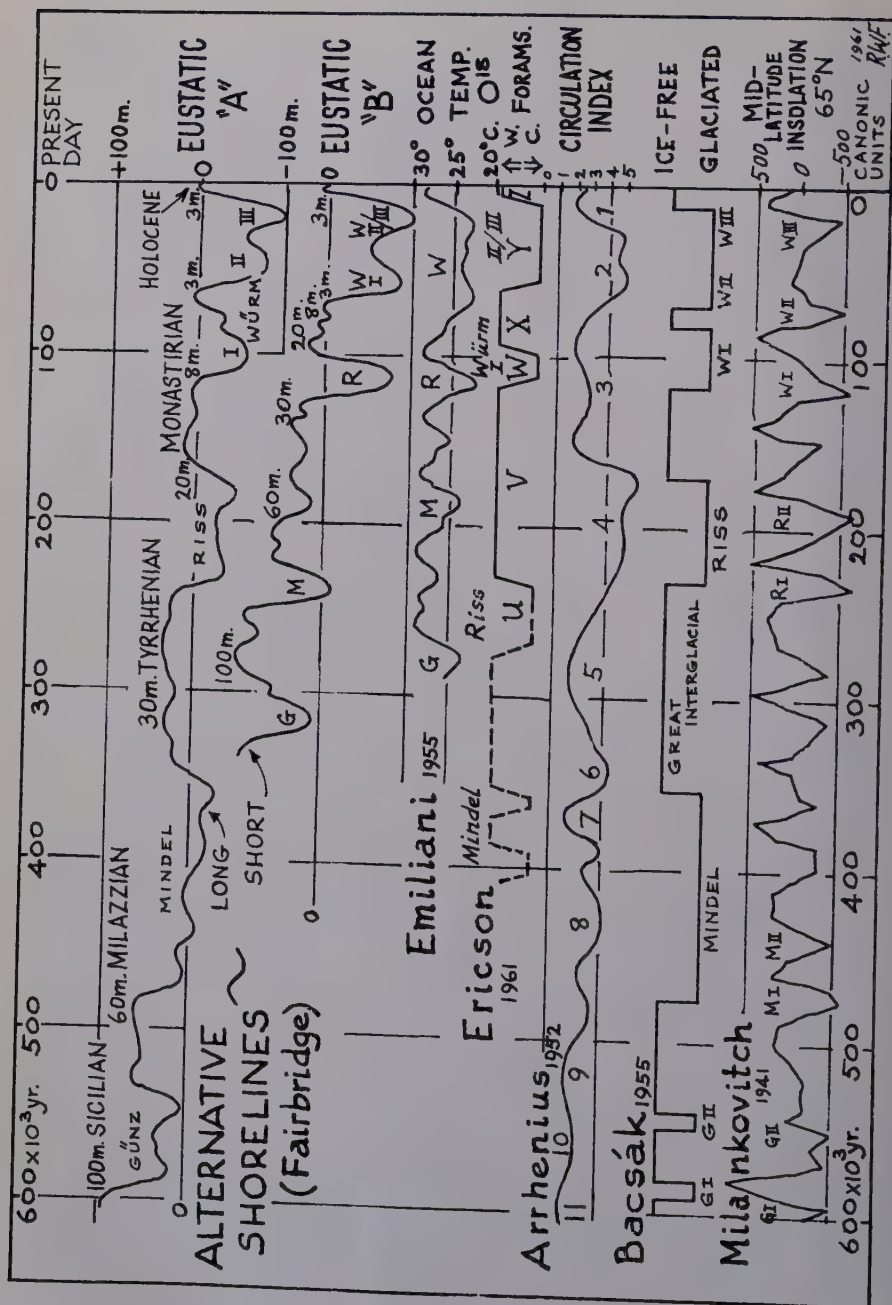 600x10³yr.
500
400
300
200
100
0 PRESENT DAY
100m. SICILIAN
60m. MILAZZIAN
30m. TYRRHENIAN
MONASTIRIAN
HOLOCENE
+100m.
GÜNZ
MINDEL
RISS
20m.
8m.
3m.
3m.
I
II
III
WÜRM
0
0 EUSTATIC "A"
-100m.
LONG
SHORT
ALTERNATIVE
SHORELINES
(Fairbridge)
100m.
60m.
30m.
20m.
8m.
3m.
3m.
G
M
R
W I
W II/III
0
0 EUSTATIC "B"
Emiliani 1955
G
M
R
W
30° OCEAN
25° TEMP.
20°C. O18
Ericson
1961
Mindel
Riss
U
V
Würm
I
W
X
II/III
Y
Z
W. FORAMS.
C.
Arrhenius 1952
11
10
9
8
7
6
5
4
3
2
1
0
1
2
3
4
5
CIRCULATION
INDEX
Bacsák 1955
GI
GII
MINDEL
GREAT
INTERGLACIAL
RISS
WI
WII
WIII
ICE-FREE
GLACIATED
Milankovitch
1941
GI
GII
MI
MII
RI
RII
WI
WII
WIII
500
0
-500
MID-
LATITUDE
INSOLATION
65°N
CANONIC
UNITS
600x10³yr.
500
400
300
200
100
0
1961
RWF